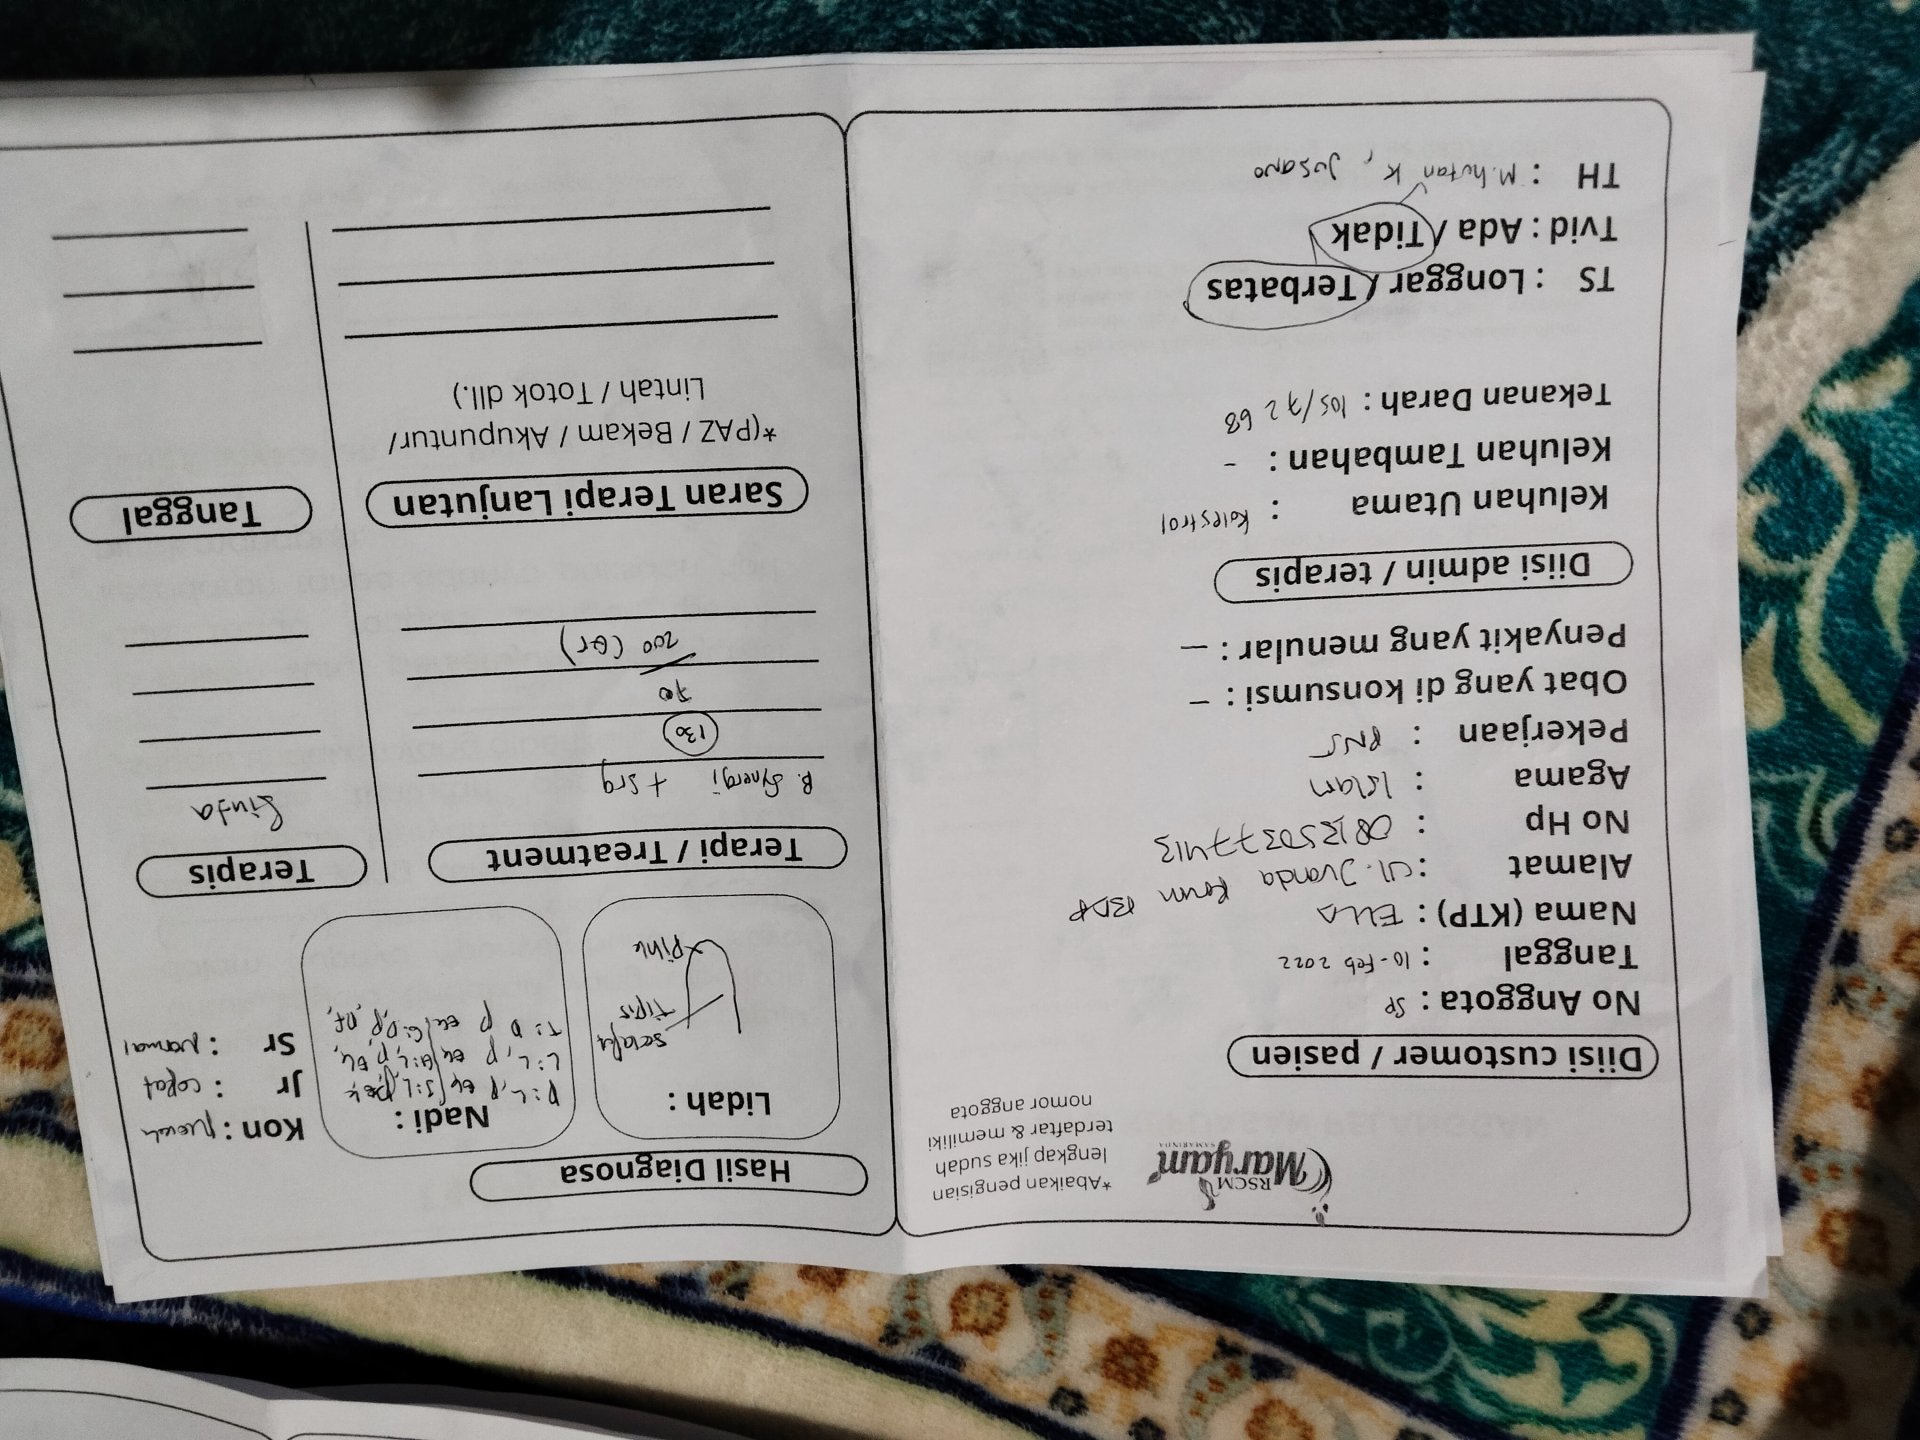 RSCM
Maryam
SAMARINDA
*Abaikan pengisian
lengkap jika sudah
terdaftar & memiliki
nomor anggota
Diisi customer / pasien
No Anggota : SP
Tanggal : 10-Feb 2022
Nama (KTP) : ELLA
Alamat : Jl. Juanda
No Hp :
Agama : Islam
Pekerjaan : PNS
Obat yang di konsumsi : -
Penyakit yang menular : -
Diisi admin / terapis
Keluhan Utama : Kolestrol
Keluhan Tambahan : -
Tekanan Darah : 105/72 68
TS : Longgar / Terbatas
Tvid : Ada / Tidak
TH : M.hutan K, Jusano
Hasil Diagnosa
Lidah :
selaput
tipis
Pink
Nadi :
Kon : Merah
Jr : cepat
Sr : Normal
Terapi / Treatment
Terapis
P. Synergi + srg
Linda
130
70
200 (Qr)
Saran Terapi Lanjutan
Tanggal
*(PAZ / Bekam / Akupuntur /
Lintah / Totok dll.)